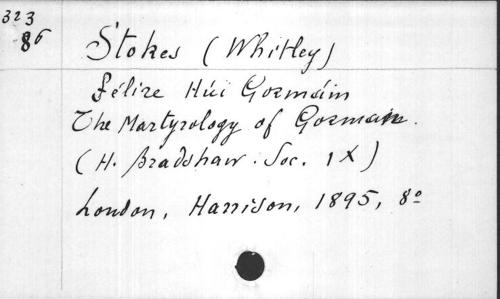 323
86
Stokes (Whitley)
Félire Húi Gormáin
The Martyrology of Gorman.
(H. Bradshaw. Soc. IX)
London, Harrison, 1895, 8°